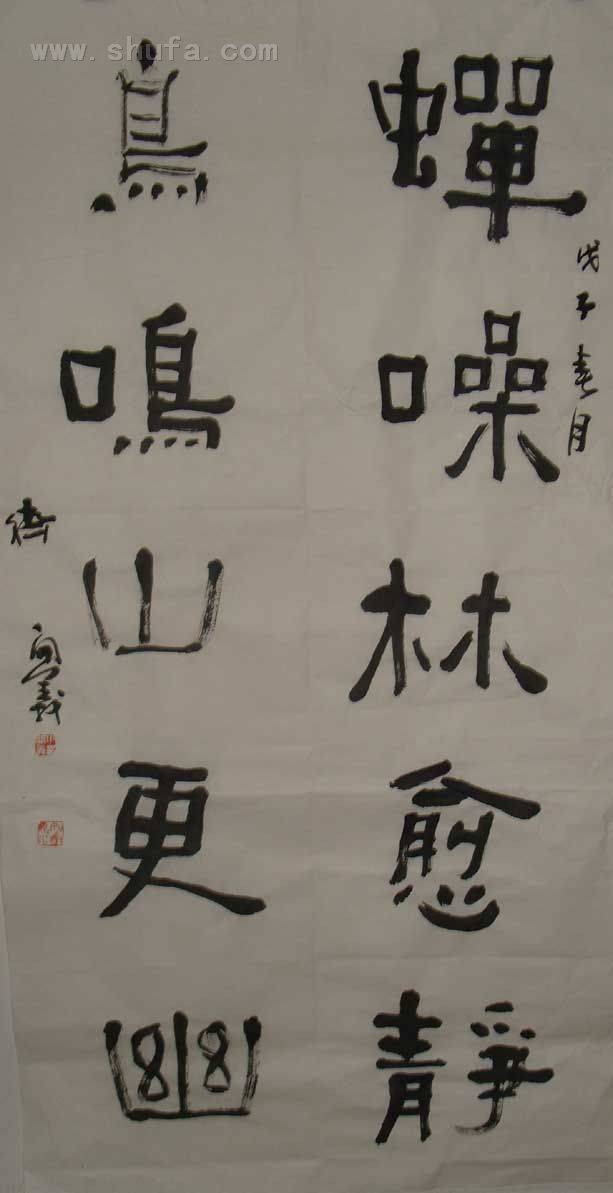 蟬噪林愈靜
戊子春月
鳥鳴山更幽
www.shufa.com